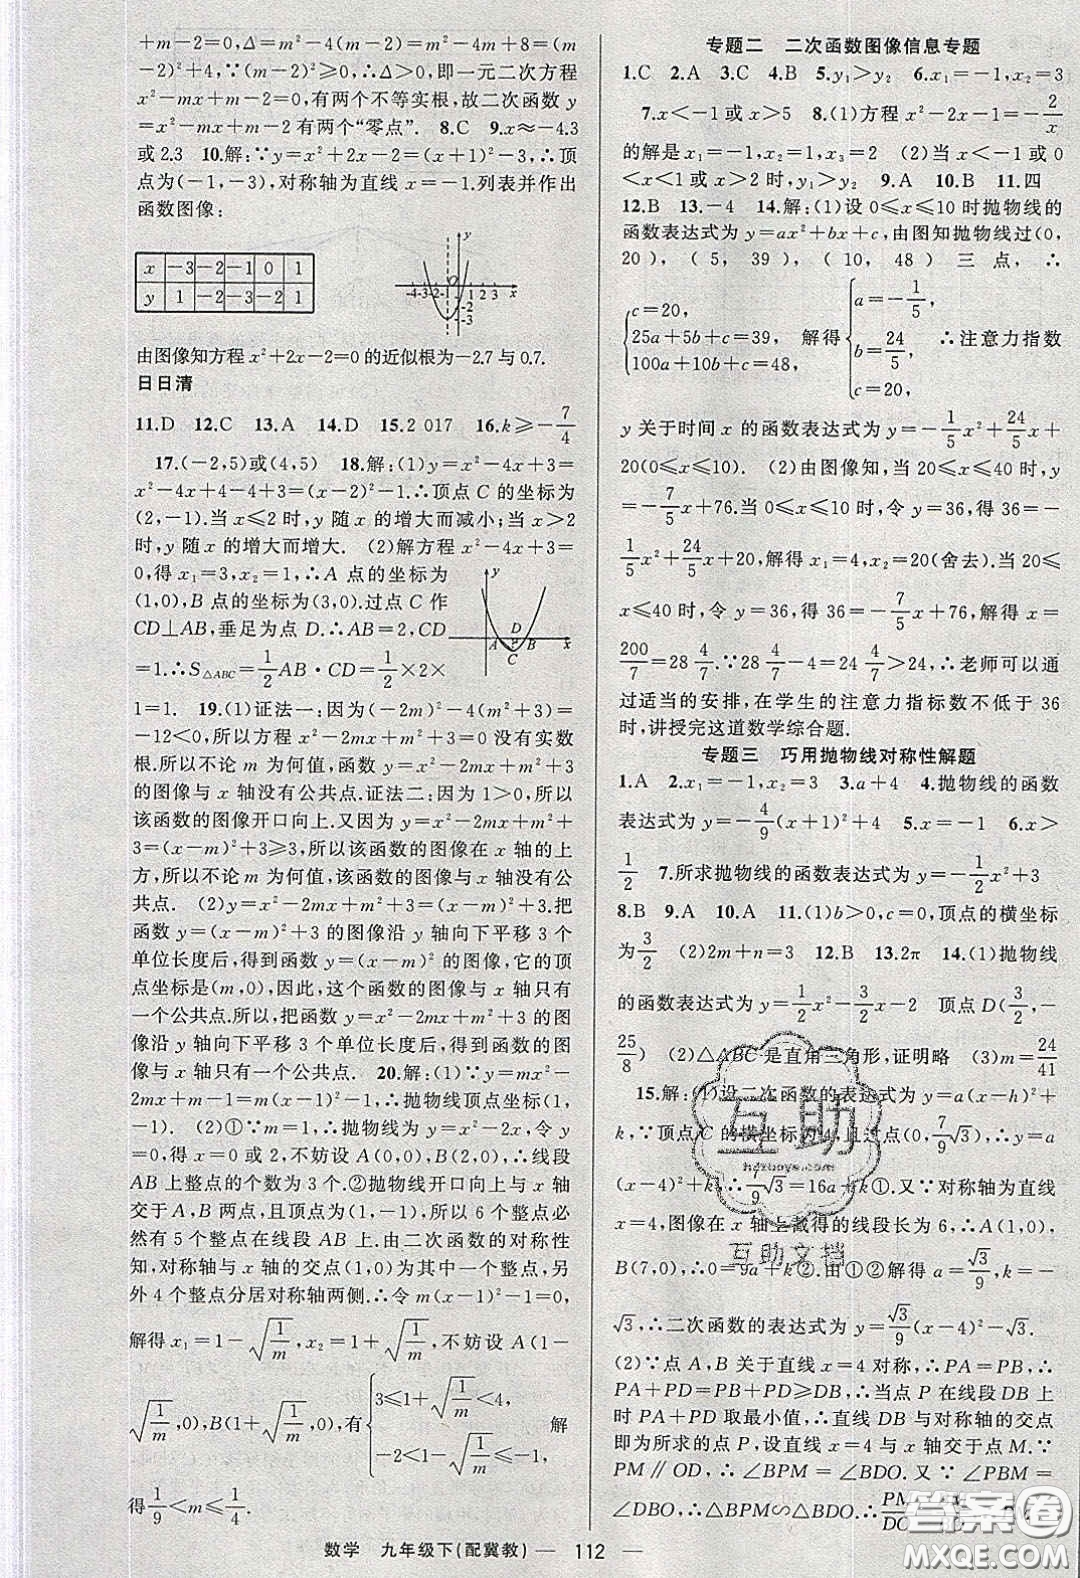 +m-2=0,Δ=m²-4(m-2)=m²-4m+8=(m-
2)²+4,∵(m-2)²≥0,∴Δ>0,即一元二次方程
x²-mx+m-2=0,有两个不等实根,故二次函数 y
=x²-mx+m-2 有两个“零点”. 8.C 9.x≈-4.3
或2.3 10.解:∵y=x²+2x-2=(x+1)²-3,∴顶
点为(-1,-3),对称轴为直线 x=-1.列表并作出
函数图像:
x -3 -2 -1 0 1
y 1 -2 -3 -2 1
由图像知方程 x²+2x-2=0 的近似根为-2.7 与 0.7.
日日清
11.D 12.C 13.A 14.D 15.2 017 16.k≥-7/4
17.(-2,5)或(4,5) 18.解:(1)y=x²-4x+3=
x²-4x+4-4+3=(x-2)²-1.∴顶点 C 的坐标为
(2,-1).当 x≤2 时,y 随 x 的增大而减小;当 x>2
时,y 随 x 的增大而增大. (2)解方程 x²-4x+3=
0,得 x₁=3,x₂=1,∴A 点的坐标为
(1,0),B 点的坐标为(3,0).过点 C 作
CD⊥AB,垂足为点 D.∴AB=2,CD
=1.∴S△ABC=1/2 AB·CD=1/2×2×
1=1. 19.(1)证法一:因为(-2m)²-4(m²+3)=
-12<0,所以方程 x²-2mx+m²+3=0 没有实数
根.所以不论 m 为何值,函数 y=x²-2mx+m²+3
的图像与 x 轴没有公共点.证法二:因为 1>0,所以
该函数的图像开口向上.又因为 y=x²-2mx+m²+
3=(x-m)²+3≥3,所以该函数的图像在 x 轴的上
方,所以不论 m 为何值,该函数的图像与 x 轴没有公
共点. (2)y=x²-2mx+m²+3=(x-m)²+3.把
函数 y=(x-m)²+3 的图像沿 y 轴向下平移 3 个
单位长度后,得到函数 y=(x-m)² 的图像,它的顶
点坐标是(m,0),因此,这个函数的图像与 x 轴只有
一个公共点.所以,把函数 y=x²-2mx+m²+3 的图
像沿 y 轴向下平移 3 个单位长度后,得到的函数的图
像与 x 轴只有一个公共点. 20.解:(1)∵y=mx²-
2mx+m-1=m(x-1)²-1,∴抛物线顶点坐标(1,
-1). (2)①∵m=1,∴抛物线为 y=x²-2x,令 y
=0,得 x=0 或 2,不妨设 A(0,0),B(2,0),∴线段
AB 上整点的个数为 3 个.②抛物线开口向上,与 x 轴
交于 A,B 两点,且顶点为(1,-1),所以 6 个整点必
有 5 个整点在线段 AB 上.由二次函数的对称性
知,对称轴与 x 轴的交点(1,0)为其中一个整点,另
外 4 个整点分居对称轴两侧.∴令 m(x-1)²-1=0,
解得 x₁=1-√(1/m),x₂=1+√(1/m),不妨设 A(1-
√(1/m),0),B(1+√(1/m),0),有{3≤1+√(1/m)<4, -2<1-√(1/m)≤-1, 解
得 1/9<m≤1/4.
专题二 二次函数图像信息专题
1.C 2.A 3.C 4.B 5.y₁>y₂ 6.x₁=-1,x₂=3
7.x<-1 或 x>5 8.(1)方程 x²-2x-1=-2/x
的解是 x₁=-1,x₂=1,x₃=2 (2)当 x<-1 或 0
<x<1 或 x>2 时,y₁>y₂ 9.A 10.B 11.四
12.B 13.-4 14.解:(1)设 0≤x≤10 时抛物线的
函数表达式为 y=ax²+bx+c,由图知抛物线过(0,
20),(5,39),(10,48)三点,∴
{c=20, 25a+5b+c=39, 100a+10b+c=48, 解得{a=-1/5, b=24/5, c=20, ∴注意力指数
y 关于时间 x 的函数表达式为 y=-1/5x²+24/5x+
20(0≤x≤10). (2)由图像知,当 20≤x≤40 时,y=
-7/5x+76.当 0≤x≤10 时,令 y=36,得 36=-
1/5x²+24/5x+20,解得 x=4,x=20(舍去).当 20≤
x≤40 时,令 y=36,得 36=-7/5x+76,解得 x=
200/7=28 4/7.∵28 4/7-4=24 4/7>24,∴老师可以通
过适当的安排,在学生的注意力指标数不低于 36
时,讲授完这道数学综合题.
专题三 巧用抛物线对称性解题
1.A 2.x₁=-1,x₂=3 3.a+4 4.抛物线的函数
表达式为 y=-4/9(x+1)²+4 5.x=-1 6.x>
1/2 7.所求抛物线的函数表达式为 y=-1/2x²+3
8.B 9.A 10.A 11.(1)b>0,c=0,顶点的横坐标
为 3/2 (2)2m+n=3 12.B 13.2π 14.(1)抛物线
的函数表达式为 y=1/2x²-3/2x-2 顶点 D(3/2,-
25/8) (2)△ABC 是直角三角形,证明略 (3)m=24/41
15.解:(1)设二次函数的表达式为 y=a(x-h)²+
k,∵顶点 C 的横坐标为 4,且过点(0,7/9√3),∴y=a
(x-4)²+k,∴7/9√3=16a+k①.又∵对称轴为直线
x=4,图像在 x 轴上截得的线段长为 6,∴A(1,0),
B(7,0),∴0=9a+k②.由①②解得 a=√3/9,k=-
√3,∴二次函数的表达式为 y=√3/9(x-4)²-√3.
(2)∵点 A,B 关于直线 x=4 对称,∴PA=PB,∴
PA+PD=PB+PD≥DB,∴当点 P 在线段 DB 上
时 PA+PD 取最小值,∴直线 DB 与对称轴的交点
即为所求的点 P,设直线 x=4 与 x 轴交于点 M.∵
PM∥OD,∴∠BPM=∠BDO.又∵∠PBM=
∠DBO,∴△BPM∽△BDO.∴PM/DO=
互助
hdzuoye.com
互助文档
答案圈
MXQE.COM
数学 九年级下(配冀教) — 112 —